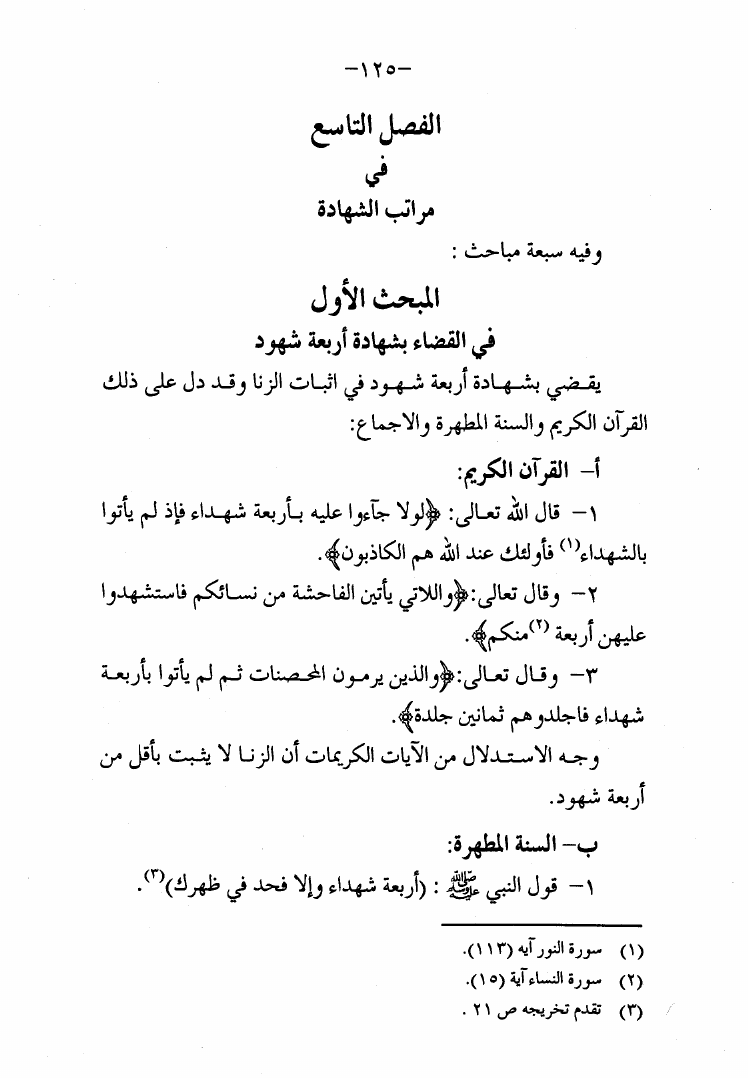 -١٢٥-
الفصل التاسع
في
مراتب الشهادة
وفيه سبعة مباحث :
المبحث الأول
في القضاء بشهادة أربعة شهود
يقضي بشهادة أربعة شهود في اثبات الزنا وقد دل على ذلك
القرآن الكريم والسنة المطهرة والاجماع:
أ- القرآن الكريم:
١- قال الله تعالى: ﴿لولا جآءوا عليه بأربعة شهداء فإذ لم يأتوا
بالشهداء(١) فأولئك عند الله هم الكاذبون﴾.
٢- وقال تعالى:﴿واللاتي يأتين الفاحشة من نسائكم فاستشهدوا
عليهن أربعة (٢)منكم﴾.
٣- وقال تعالى:﴿والذين يرمون المحصنات ثم لم يأتوا بأربعة
شهداء فاجلدوهم ثمانين جلدة﴾.
وجه الاستدلال من الآيات الكريمات أن الزنا لا يثبت بأقل من
أربعة شهود.
ب- السنة المطهرة:
١- قول النبي ﷺ : (أربعة شهداء وإلا فحد في ظهرك)(٣).
(١) سورة النور آيه (١١٣).
(٢) سورة النساء آية (١٥).
(٣) تقدم تخريجه ص ٢١ .